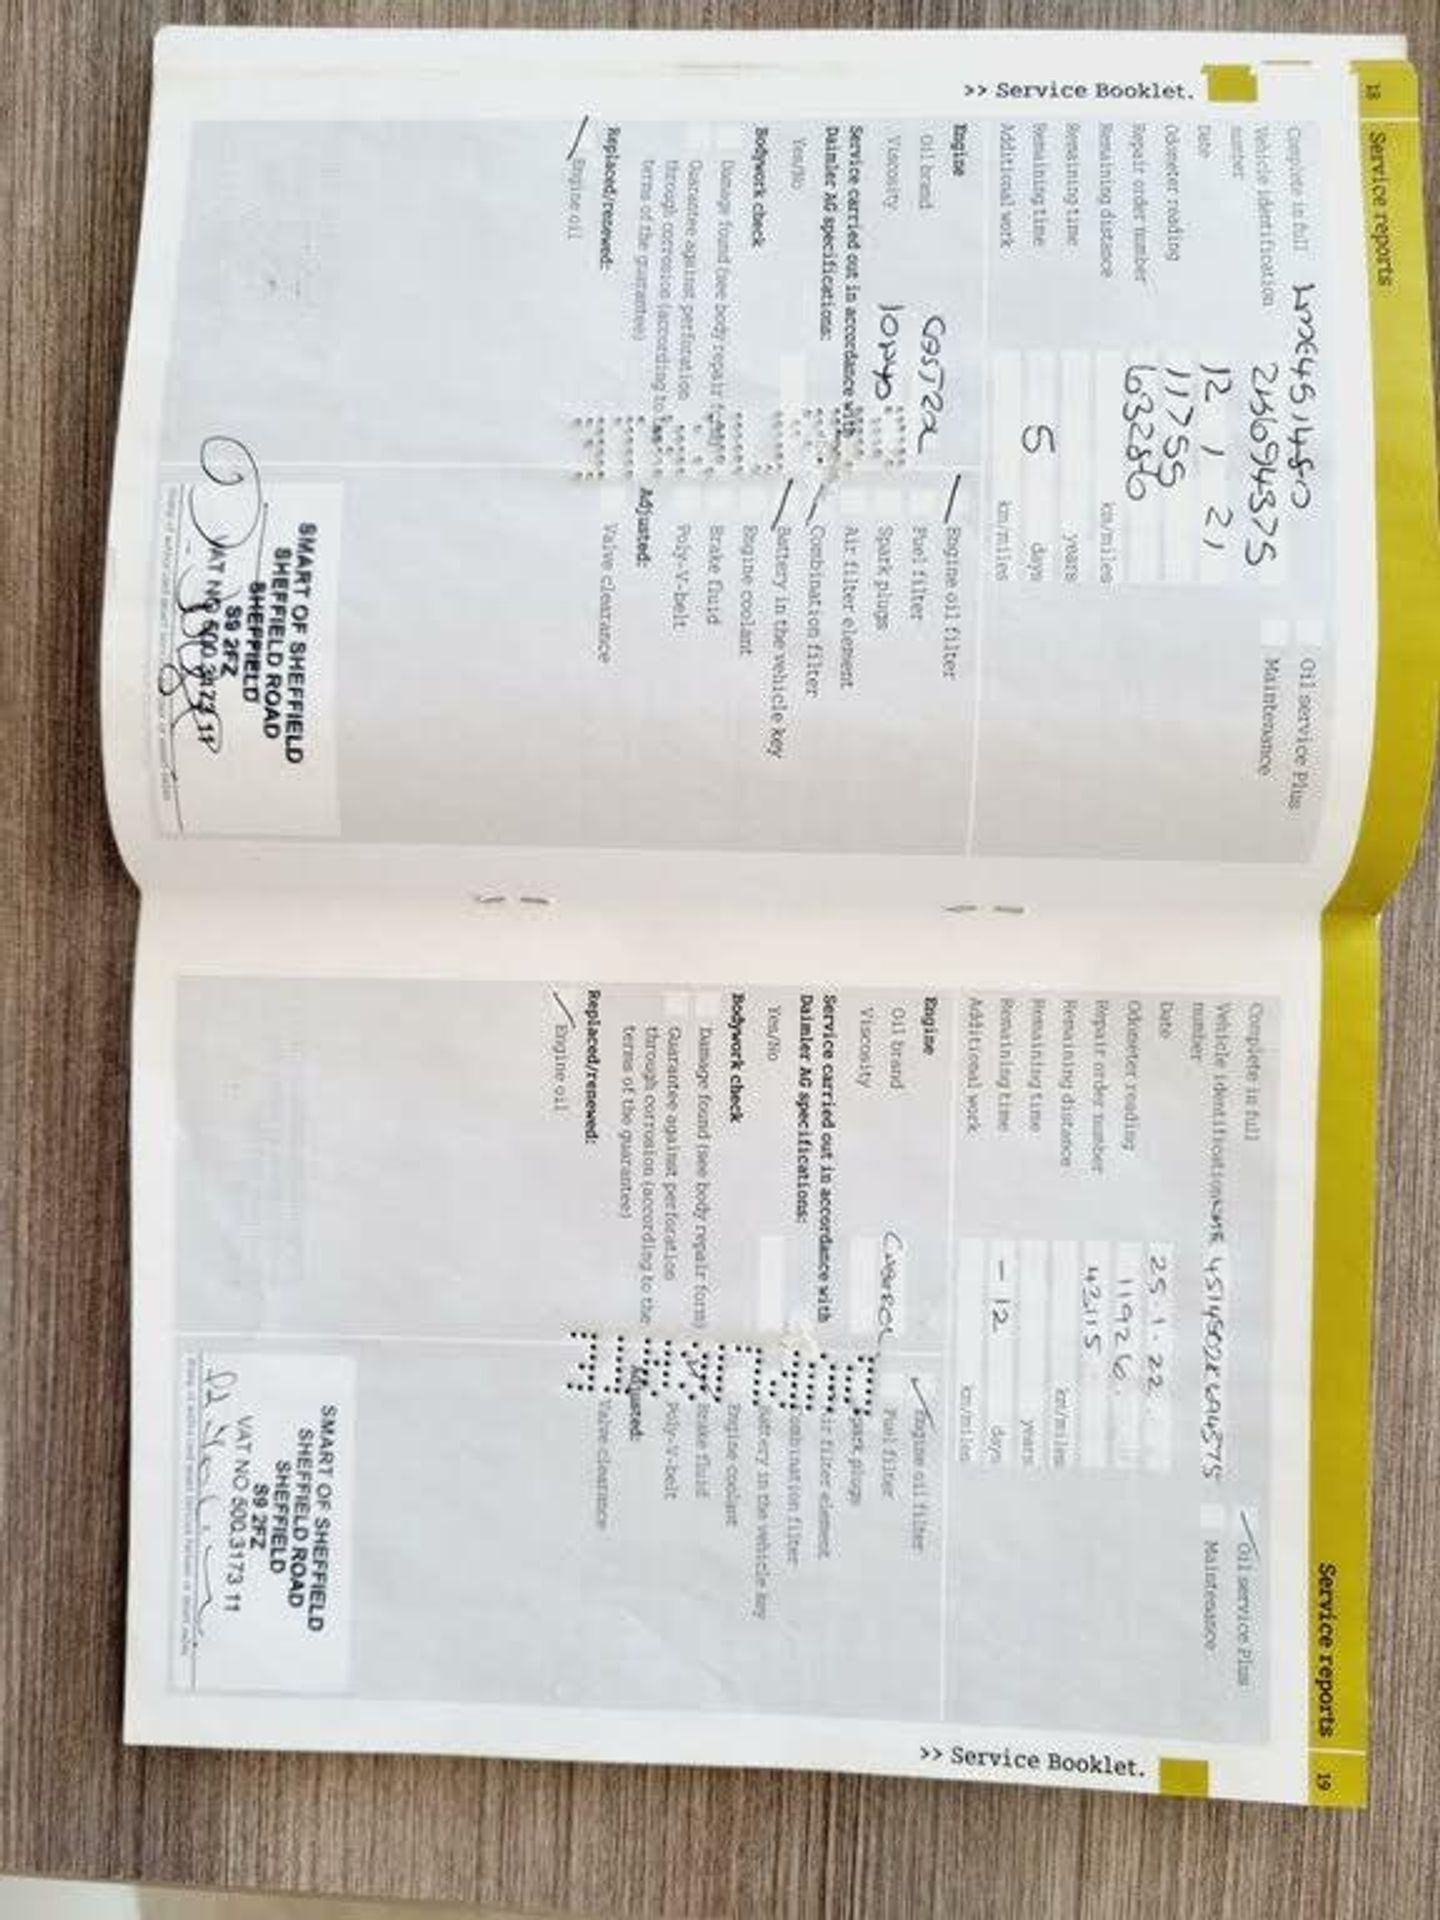 18 Service reports
Complete in full
Oil service Plus
Vehicle identification number
2K694375
Maintenance
Date 12 1 21
Odometer reading 11755
Repair order number 63286
Remaining distance km/miles
Remaining time years
Remaining time 5 days
Additional work km/miles
Engine
Oil brand
Viscosity 10W40
Service carried out in accordance with
Daimler AG specifications:
Yes/No
Bodywork check
Damage found (see body repair form)
Guarantee against perforation
through corrosion (according to the
terms of the guarantee)
Replaced/renewed:
Engine oil
Engine oil filter
Fuel filter
Spark plugs
Air filter element
Combination filter
Battery in the vehicle key
Engine coolant
Brake fluid
Poly-V-belt
Adjusted:
Valve clearance
SMART OF SHEFFIELD
SHEFFIELD ROAD
SHEFFIELD
S9 2FZ
VAT NO 500 3173 11
>> Service Booklet.
Service reports 19
Complete in full
Oil service Plus
Vehicle identification number
Maintenance
Date 25.1.22
Odometer reading 11926
Repair order number 43115
Remaining distance km/miles
Remaining time years
Remaining time -12 days
Additional work km/miles
Engine
Oil brand
Viscosity
Service carried out in accordance with
Daimler AG specifications:
Yes/No
Bodywork check
Damage found (see body repair form)
Guarantee against perforation
through corrosion (according to the
terms of the guarantee)
Replaced/renewed:
Engine oil
Engine oil filter
Fuel filter
park plugs
ir filter element
ombination filter
attery in the vehicle key
Engine coolant
Brake fluid
Poly-V-belt
Adjusted:
Valve clearance
SMART OF SHEFFIELD
SHEFFIELD ROAD
SHEFFIELD
S9 2FZ
VAT NO 500 3173 11
>> Service Booklet.